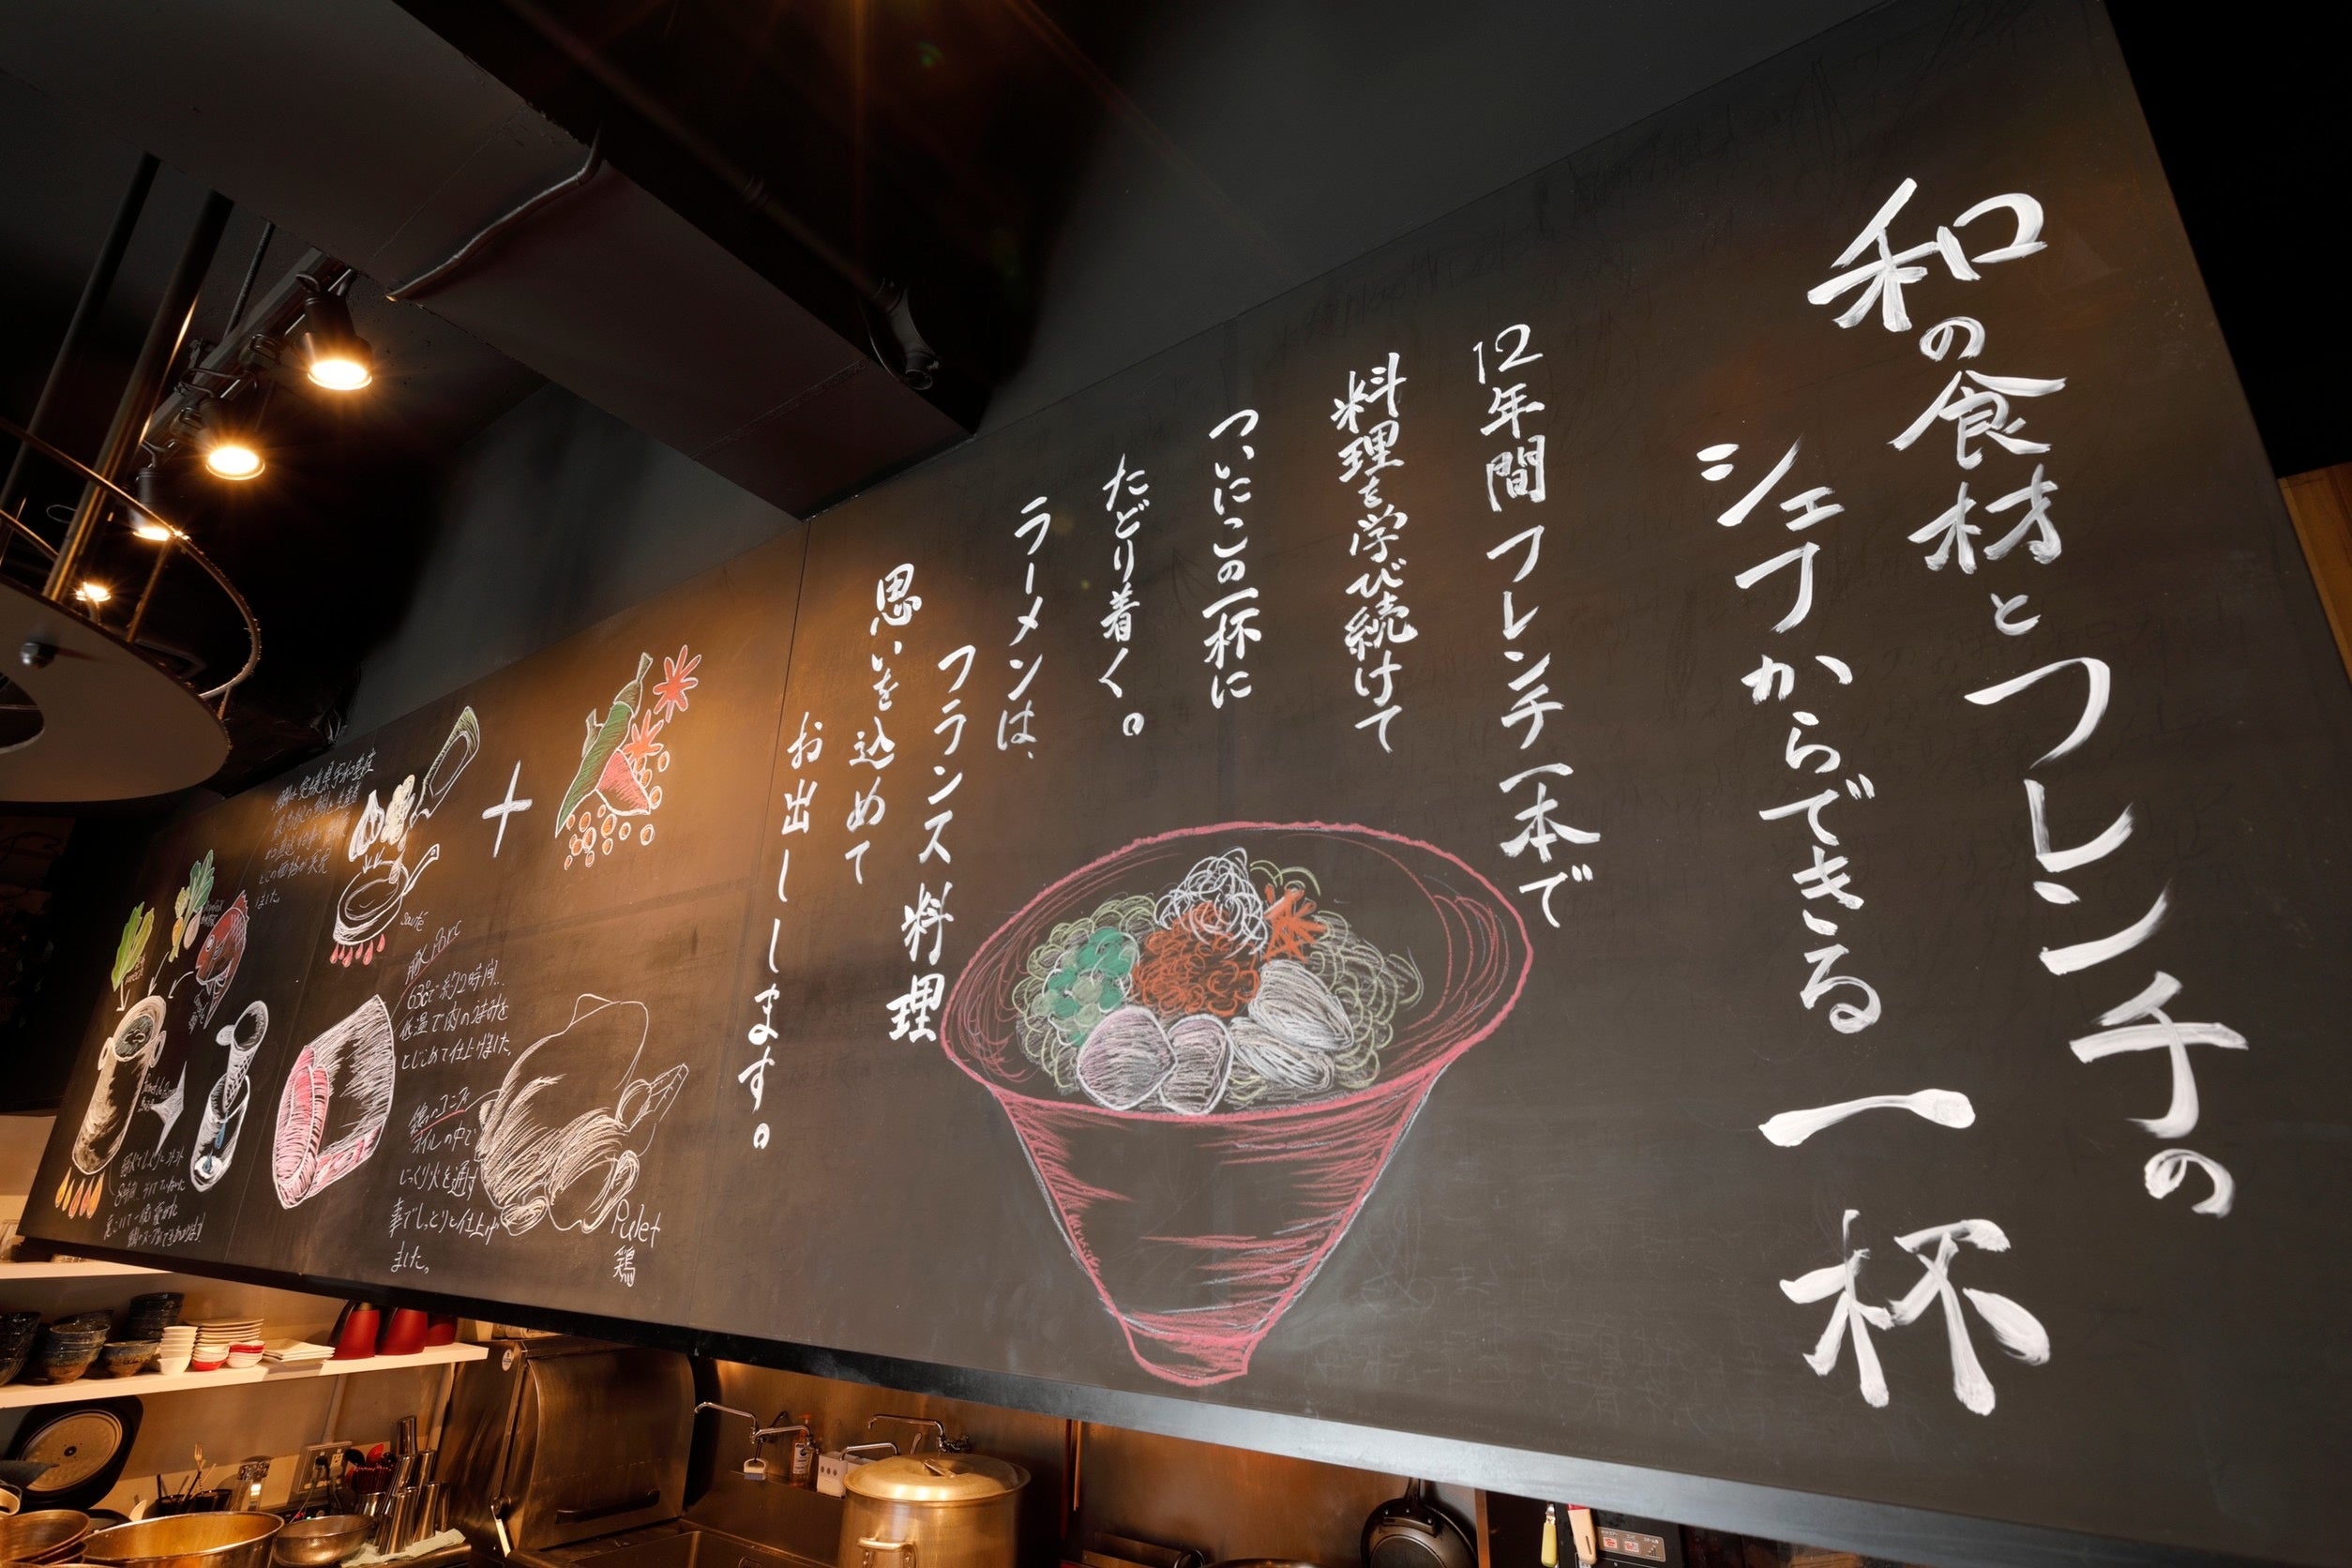 和の食材とフレンチの
シェフからできる一杯
12年間フレンチ一本で
料理を学び続けて
ついにこの一杯に
たどり着く。
ラーメンは、
フランス料理
思いを込めて
お出しします。
＋
Sauté
豚 Porc
63℃で約2時間…
低温で肉のうまみを
とじこめて仕上げました。
鶏のコンフィ
オイルの中で
じっくり火を通す
事でしっとりと仕上げ
ました。
Pulet
鶏